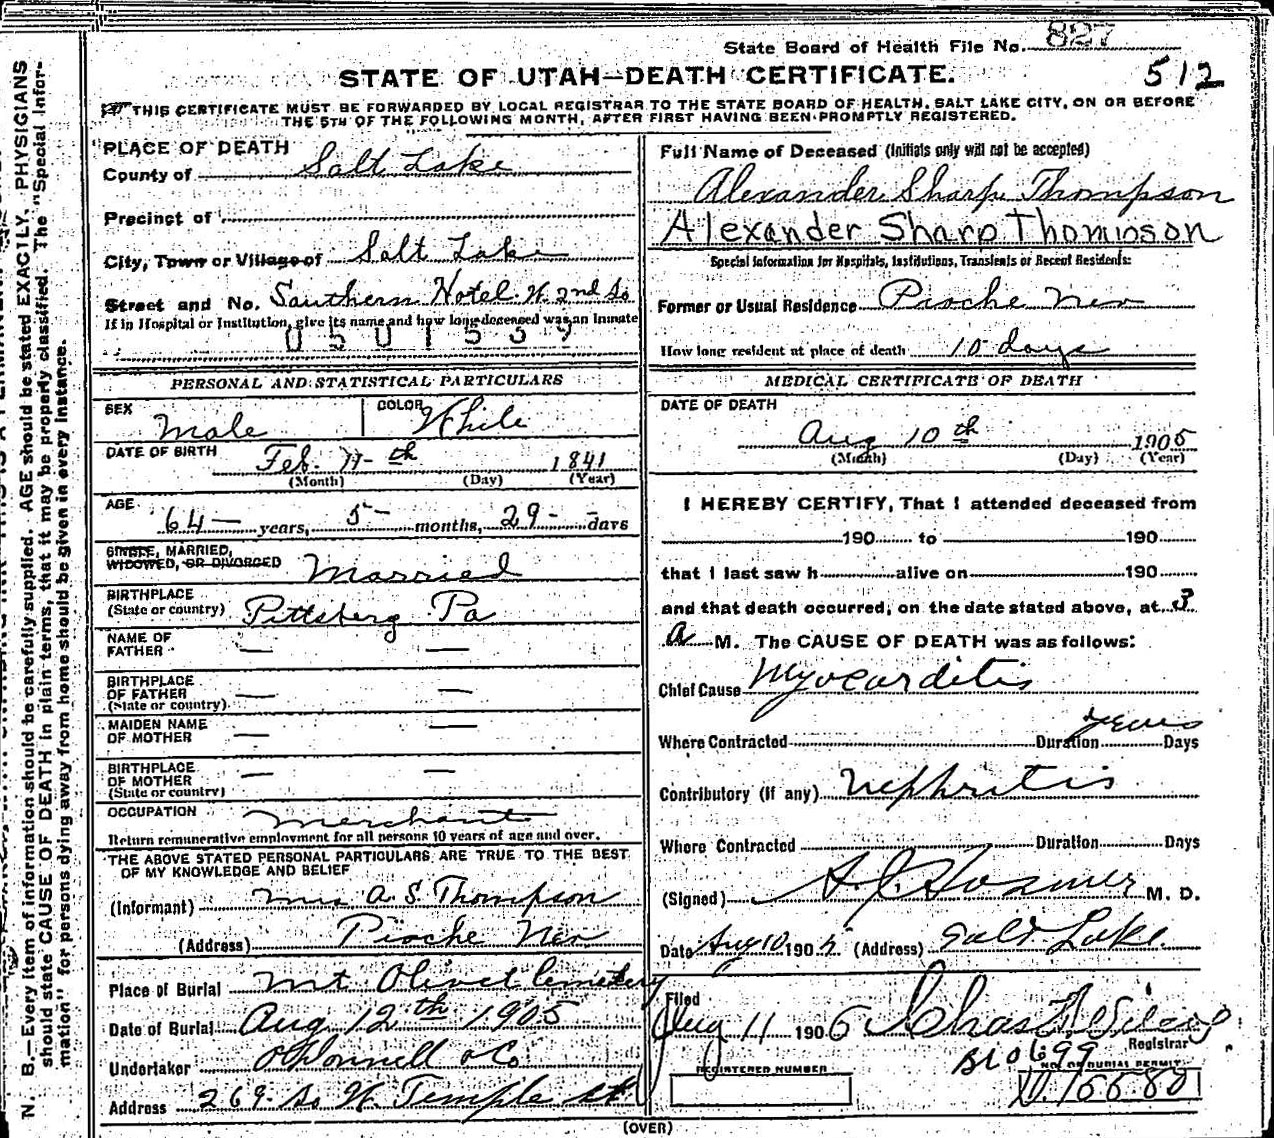 State Board of Health File No. 827
512
STATE OF UTAH—DEATH CERTIFICATE.
THIS CERTIFICATE MUST BE FORWARDED BY LOCAL REGISTRAR TO THE STATE BOARD OF HEALTH, SALT LAKE CITY, ON OR BEFORE
THE 5TH OF THE FOLLOWING MONTH, AFTER FIRST HAVING BEEN PROMPTLY REGISTERED.
PLACE OF DEATH
County of Salt Lake
Precinct of
City, Town or Village of Salt Lake
Street and No. Southern Hotel W. 2nd So
If in Hospital or Institution, give its name and how long deceased was an inmate
0501559
PERSONAL AND STATISTICAL PARTICULARS
SEX Male COLOR White
DATE OF BIRTH Feb. 11th 1841
(Month) (Day) (Year)
AGE 64 years, 5 months, 29 days
SINGLE, MARRIED,
WIDOWED, OR DIVORCED Married
BIRTHPLACE
(State or country) Pittsberg Pa
NAME OF
FATHER — —
BIRTHPLACE
OF FATHER — —
(State or country)
MAIDEN NAME
OF MOTHER — —
BIRTHPLACE
OF MOTHER — —
(State or country)
OCCUPATION merchant
Return remunerative employment for all persons 10 years of age and over.
THE ABOVE STATED PERSONAL PARTICULARS ARE TRUE TO THE BEST
OF MY KNOWLEDGE AND BELIEF
(Informant) Mrs A. S. Thompson
(Address) Pioche Nev
Place of Burial Mt Olivet Cemetery
Date of Burial Aug 12th 1905
Undertaker O'Donnell & Co
Address 269 So W. Temple St
Full Name of Deceased (Initials only will not be accepted)
Alexander Sharp Thompson
Alexander Sharp Thompson
Special Information for Hospitals, Institutions, Transients or Recent Residents:
Former or Usual Residence Pioche Nev
How long resident at place of death 10 days
MEDICAL CERTIFICATE OF DEATH
DATE OF DEATH
Aug 10th 1905
(Month) (Day) (Year)
I HEREBY CERTIFY, That I attended deceased from
190 to 190
that I last saw h alive on 190
and that death occurred, on the date stated above, at 3
a M. The CAUSE OF DEATH was as follows:
Chief Cause Myocarditis
Where Contracted Duration years Days
Contributory (if any) Nephritis
Where Contracted Duration Days
(Signed) A. J. Hosmer M. D.
Date Aug 10 1905 (Address) Salt Lake
Filed
Aug 11 1905
Registrar
B10699
REGISTERED NUMBER NO. OF BURIAL PERMIT
(OVER)
N. B.—Every item of information should be carefully supplied. AGE should be stated EXACTLY. PHYSICIANS
should state CAUSE OF DEATH in plain terms, that it may be properly classified. The "Special Infor-
mation" for persons dying away from home should be given in every instance.